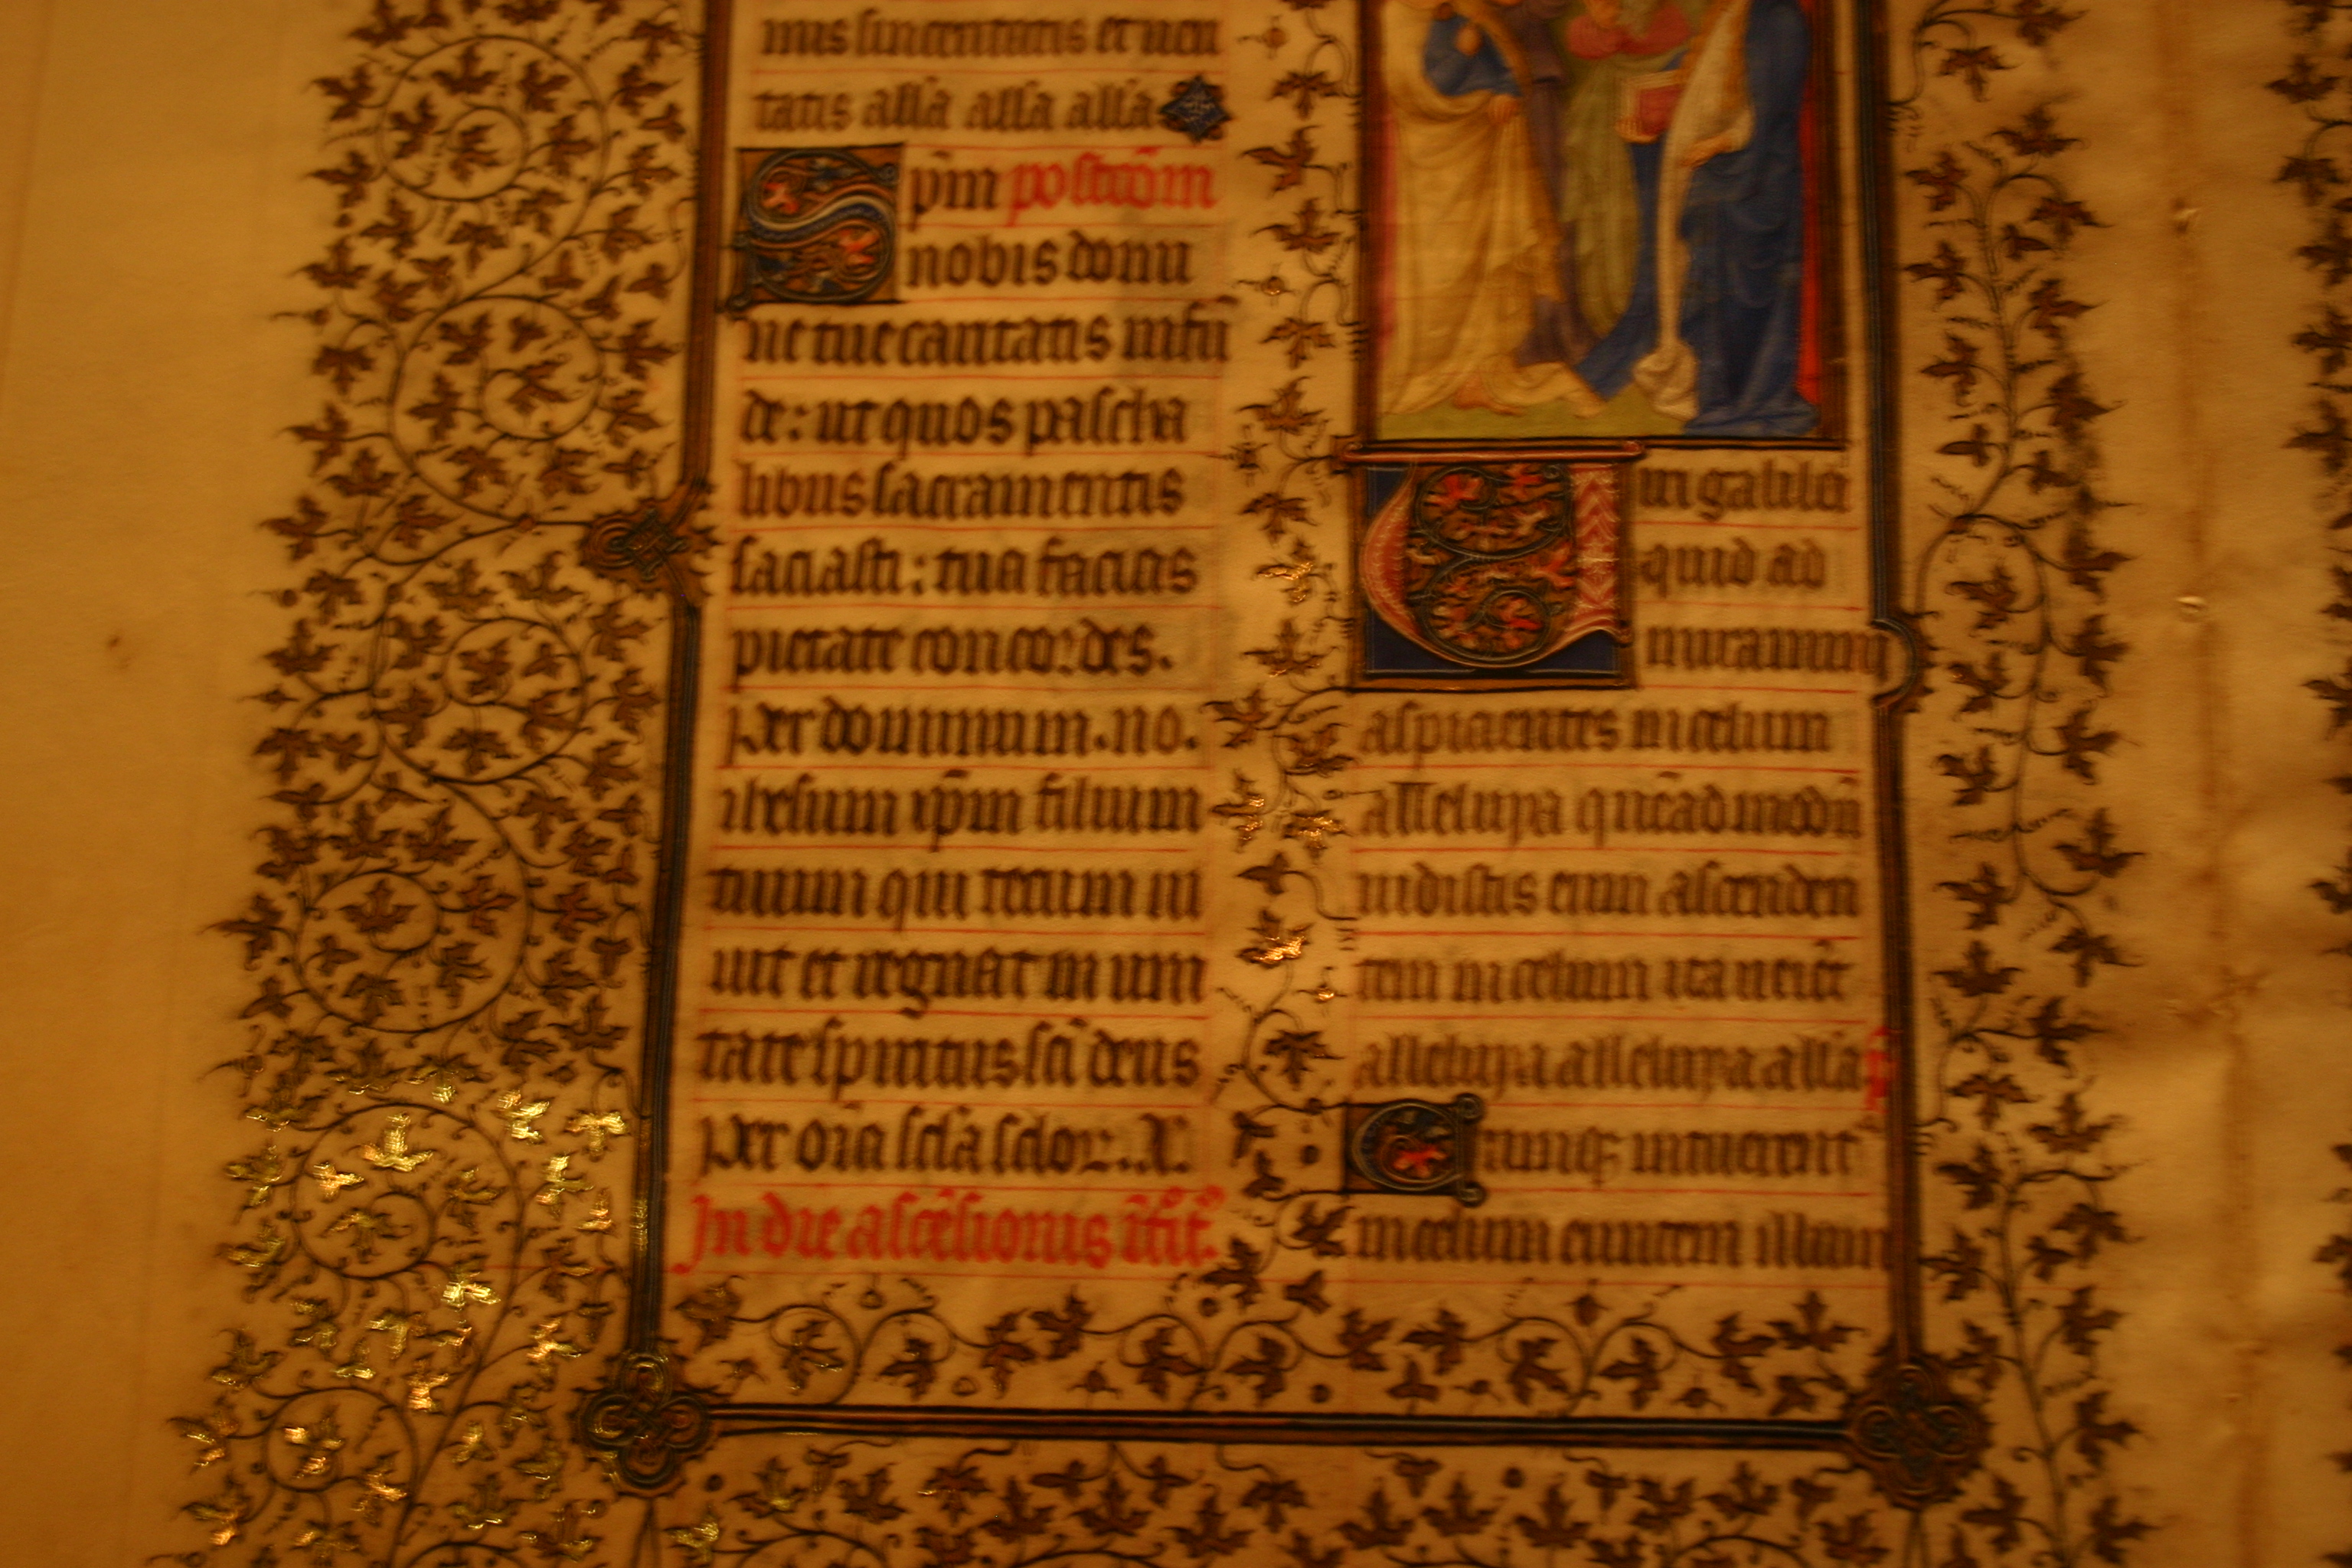 mus sinceritatis et veri
tatis all̃a all̃a all̃a
Sp̃m postcõm
nobis domi
ne tue caritatis infũ
de: ut quos pascha
libus sacramentis
saciasti: tua facias
pietate concordes.
Per dominum.no.
ihesum xp̃m filium
tuum qui tecum ui
uit et regnat in uni
tate spiritus sc̃i deus
per oĩa sc̃la sc̃loꝝ. A.
In die ascẽsionis ĩtit.
Uiri galilei
quid ad
miramini
aspicientes in celum
alleluya quẽadmodũ
uidistis eum ascenden
tem in celum ita ueniet
alleluya alleluya all̃a p̃
Cunqꝫ intuerent᷑
in celum euntem illum